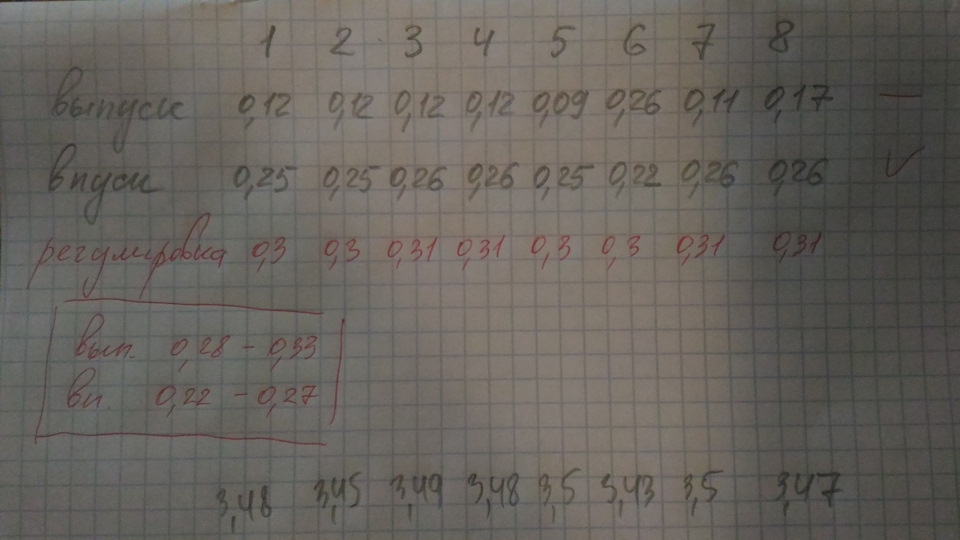 1 2 3 4 5 6 7 8
выпуск 0,12 0,12 0,12 0,12 0,09 0,26 0,11 0,17 —
впуск 0,25 0,25 0,26 0,26 0,25 0,22 0,26 0,26 ✓
регулировка 0,3 0,3 0,31 0,31 0,3 0,3 0,31 0,31
вып. 0,28 - 0,33
вп. 0,22 - 0,27
3,48 3,45 3,49 3,48 3,5 3,43 3,5 3,47